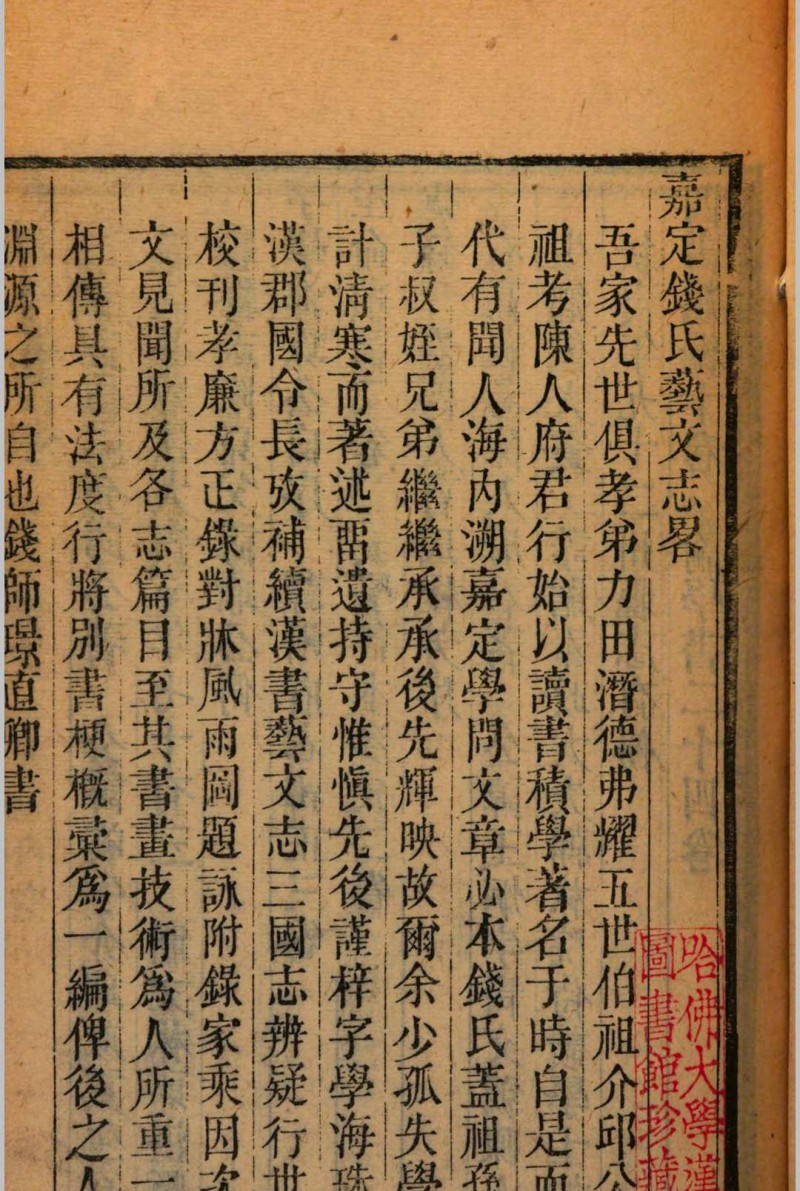 嘉定錢氏藝文志畧
吾家先世俱孝弟力田潛德弗耀五世伯祖介邱公
祖考陳人府君行始以讀書積學著名于時自是而
代有聞人海內溯嘉定學問文章必本錢氏蓋祖孫
子叔姪兄弟繼繼承承後先輝映故爾余少孤失學
計淸寒而著述畱遺持守惟愼先後謹梓字學海珠
漢郡國令長攷補續漢書藝文志三國志辨疑行世
校刊孝廉方正錄對牀風雨圖題詠附錄家乘因次
文見聞所及各志篇目至其書畫技術爲人所重一
相傳具有法度行將別書梗概彙爲一編俾後之人
淵源之所自也錢師璟直卿書
哈佛大學漢
圖書館珍藏